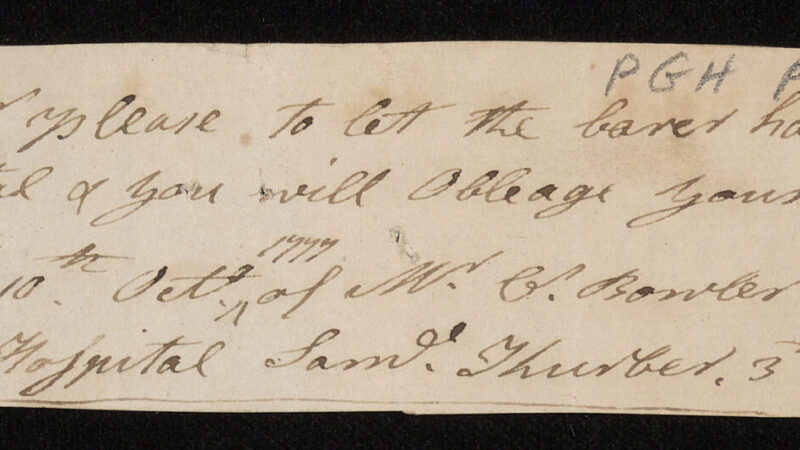 PGH P
r please to let the barer ha
tal & you will Obleage your
1777
10th. Octr. ^ of Mr. C. Bowler
Hospital Samll. Thurber, 3